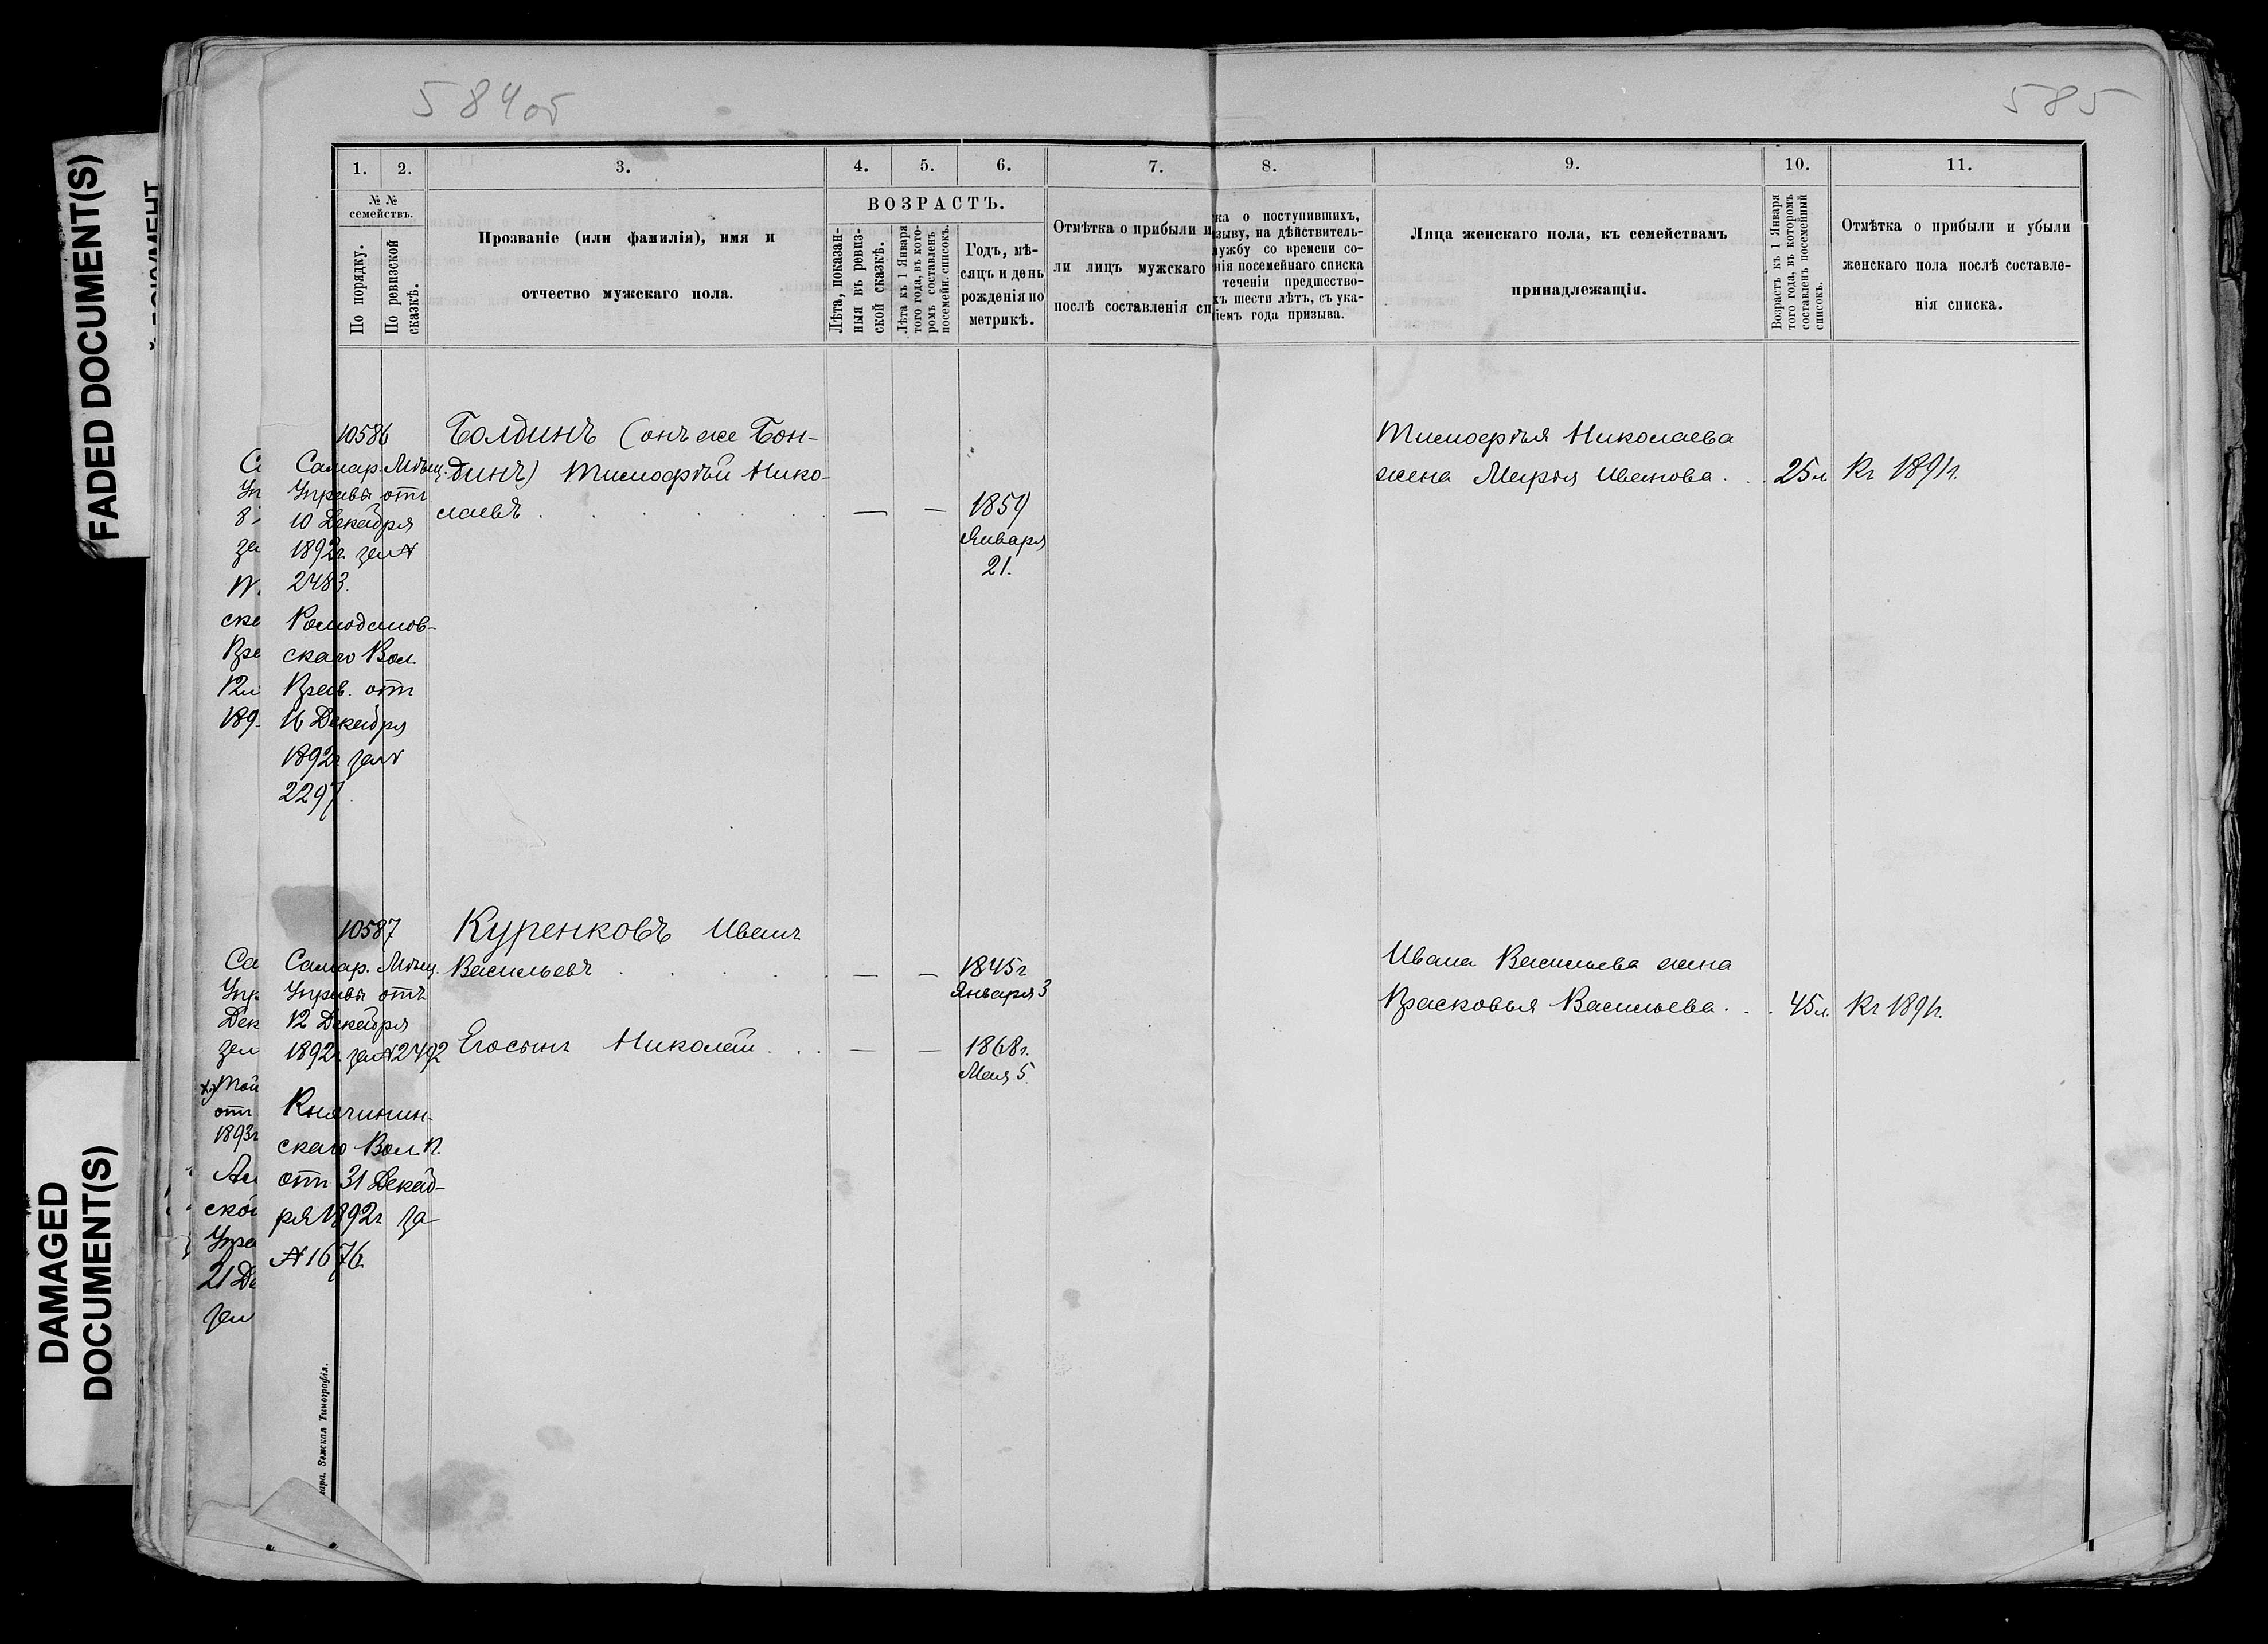 584об
585
FADED DOCUMENT(S)
DAMAGED
DOCUMENT(S)
1.
2.
3.
4.
5.
6.
7.
8.
9.
10.
11.
№ №
семействъ.
По порядку.
По ревизской
сказкѣ.
Прозваніе (или фамилія), имя и
отчество мужскаго пола.
ВОЗРАСТЪ.
Лѣта, показан-
ныя въ ревиз-
ской сказкѣ.
Лѣта къ 1 Января
того года, въ кото-
ромъ составленъ
посемейн. списокъ.
Годъ, мѣ-
сяцъ и день
рожденія по
метрикѣ.
Отмѣтка о прибыли и
ли лицъ мужскаго
послѣ составленія сп
ка о поступившихъ,
зыву, на дѣйствитель-
лужбу со времени со-
нія посемейнаго списка
теченіи предшество-
хъ шести лѣтъ, съ ука-
іемъ года призыва.
Лица женскаго пола, къ семействамъ
принадлежащія.
Возрастъ къ 1 Января
того года, въ которомъ
составленъ посемейный
списокъ.
Отмѣтка о прибыли и убыли
женскаго пола послѣ составле-
нія списка.
10586
Самар. Мѣщ.
Управы отъ
10 Декабря
1892г. за №
2483.
Ромодановс-
скаго Вол
Прав. отъ
16 Декабря
1892г. за №
2297.
Болдинъ (онъ же Бон-
динъ) Тимофѣй Нико-
лаевъ . . . . . . — —
1859
Января
21.
Тимофѣя Николаева
жена Марья Иванова . . 25л Къ 1891г.
10587
Самар. Мѣщ.
Управы отъ
12 Декабря
1892г. за № 2492
Княгинин-
скаго Вол. П.
отъ 31 Декаб-
ря 1892г за
№ 1676
Куренковъ Иванъ
Васильевъ . . . . — — 1845г
Января 3
Его сынъ Николай . . . — — 1868г.
Мая 5.
Ивана Васильева жена
Прасковья Васильева . . . 45л. Къ 1891г.
Са
Упр
Дек
за
отъ
1893г
ской
Упра
21 Де
за
ара. Земская Типографія.